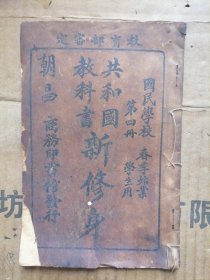 教育部審定
國民學校
春季始業
學生用
第四冊
共和國
教科書
新修身
商務印書館發行
坊
有限